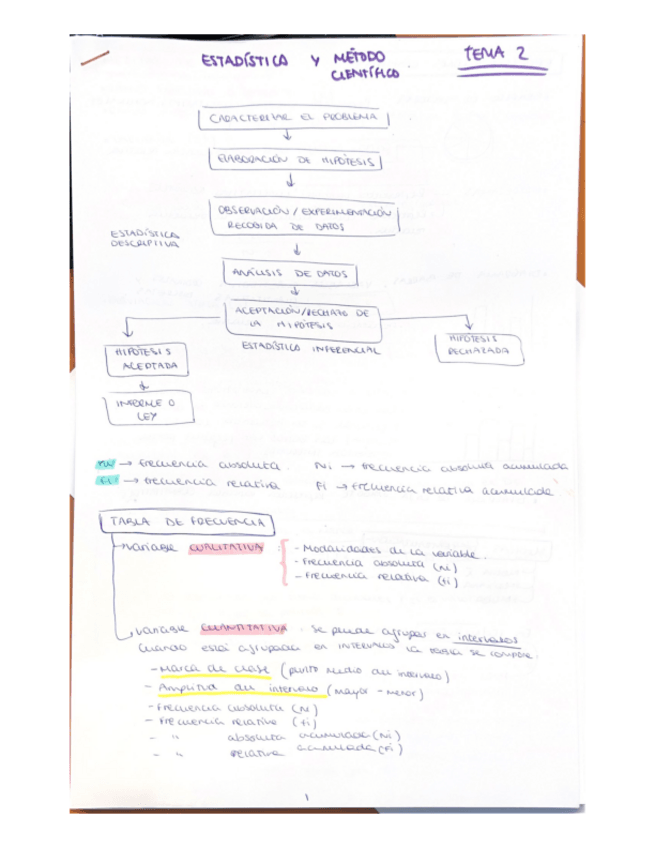 ESTADÍSTICA Y MÉTODO CIENTÍFICO
TEMA 2
CARACTERIZAR EL PROBLEMA
ELABORACIÓN DE HIPÓTESIS
OBSERVACIÓN/EXPERIMENTACIÓN
RECOGIDA DE DATOS
ESTADÍSTICA
DESCRIPTIVA
ANÁLISIS DE DATOS
ACEPTACIÓN/RECHAZO DE
LA HIPÓTESIS
ESTADÍSTICA INFERENCIAL
HIPÓTESIS
ACEPTADA
HIPÓTESIS
RECHAZADA
INFORME O
LEY
ni → frecuencia absoluta. Ni → frecuencia absoluta acumulada
fi → frecuencia relativa Fi → frecuencia relativa acumulada
TABLA DE FRECUENCIA
variable CUALITATIVA
- Modalidades de la variable.
- Frecuencia absoluta (ni)
- Frecuencia relativa (fi)
variable CUANTITATIVA. Se puede agrupar en intervalos
Cuando está agrupada en INTERVALOS la tabla se compone:
- Marca de clase (punto medio del intervalo)
- Amplitud del intervalo (mayor - menor)
- Frecuencia absoluta (ni)
- Frecuencia relativa (fi)
- " absoluta acumulada (Ni)
- " relativa acumulada (Fi)
1